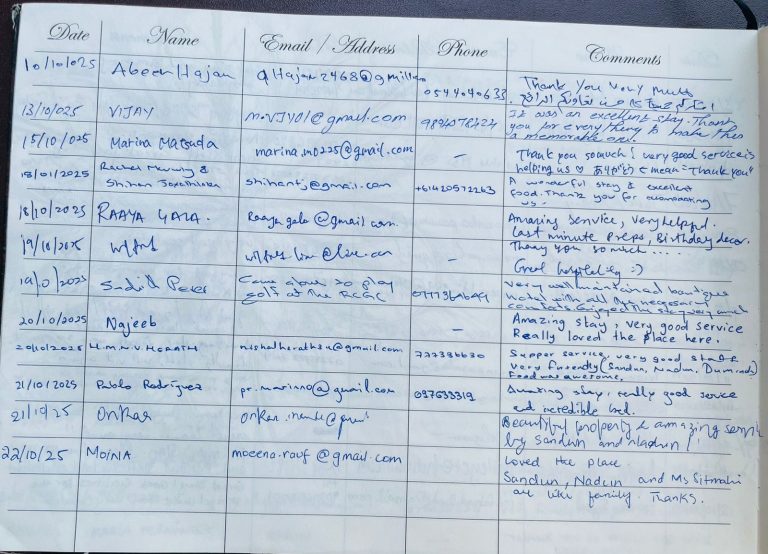 Date Name Email / Address Phone Comments
10/10/025 Abeer Hajan qHajan2468@gmillon 0544040633 Thank you very much
13/10/025 VIJAY m.vijy01@gmail.com 9894078424 It was an excellent stay. Thank
you for everything to make this
a memorable one.
15/10/025 Marina Matsuda marina.m0225@gmail.com – Thank you so much! very good service is
helping us ♡ ありがとう mean "Thank you"
18/01/2025 Rachel &
Shihan shihantj@gmail.com +61420572263 A wonderful stay & excellent
food. Thank you for
us -
18/10/2025 RAAYA GALA. Raaya gala@gmail com. Amazing service, very helpful.
last minute preps, Birthday decor.
19/10/2025 – Thank you so much....
Great hospitality :)
19/0/2025 Came alone to play
golf at the RCGC Very well maintained boutique
hotel with all the necessary
comforts. Enjoyed the stay very much
20/10/2025 Najeeb – Amazing stay, very good service
Really loved the place here.
20/10/2025 H.M.N.V. HERATH nishalherath34@gmail.com 777386630 Supper service, very good staff
very friendly (Sandun, Nadun, Duminda)
Food was awesome.
21/10/2025 Pablo Rodríguez pr.marinno@gmail.com 097633319 Amazing stay, really good service
and incredible bed.
21/10/25 Onkar Beautiful property & amazing service
by Sandun and Nadun!
22/10/25 MOINA moeena.rauf@gmail.com Loved the place.
Sandun, Nadun and Ms Sitmahi
are like family. Thanks.